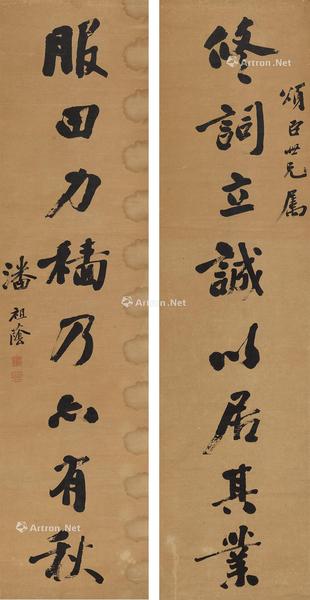 頌臣世兄屬
修詞立誠以居其業
服田力穡乃亦有秋
潘祖蔭
Artron.Net
Artron.Net
Artron.Net
Artron.Net
Artron.Net